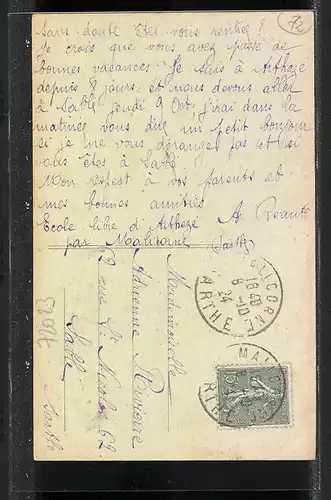 sans doute êtes vous rentrée ?
je crois que vous avez passé de
bonnes vacances. Je suis à Arthezé
depuis 8 jours et nous devons aller
à Sablé jeudi 9 Oct, j'irai dans la
matinée vous dire un petit bonjour
si je ne vous dérange pas et si
vous êtes à Sablé
Mon respect à vos parents et
mes bonnes amitiés
A.
Ecole libre d'Arthezé
par Malicorne
(Sarthe)
72
MALICORNE
16 40
8 -10
24
SARTHE
Mademoiselle
Adrienne Rivierre
62 rue St
62
Sablé
Sarthe